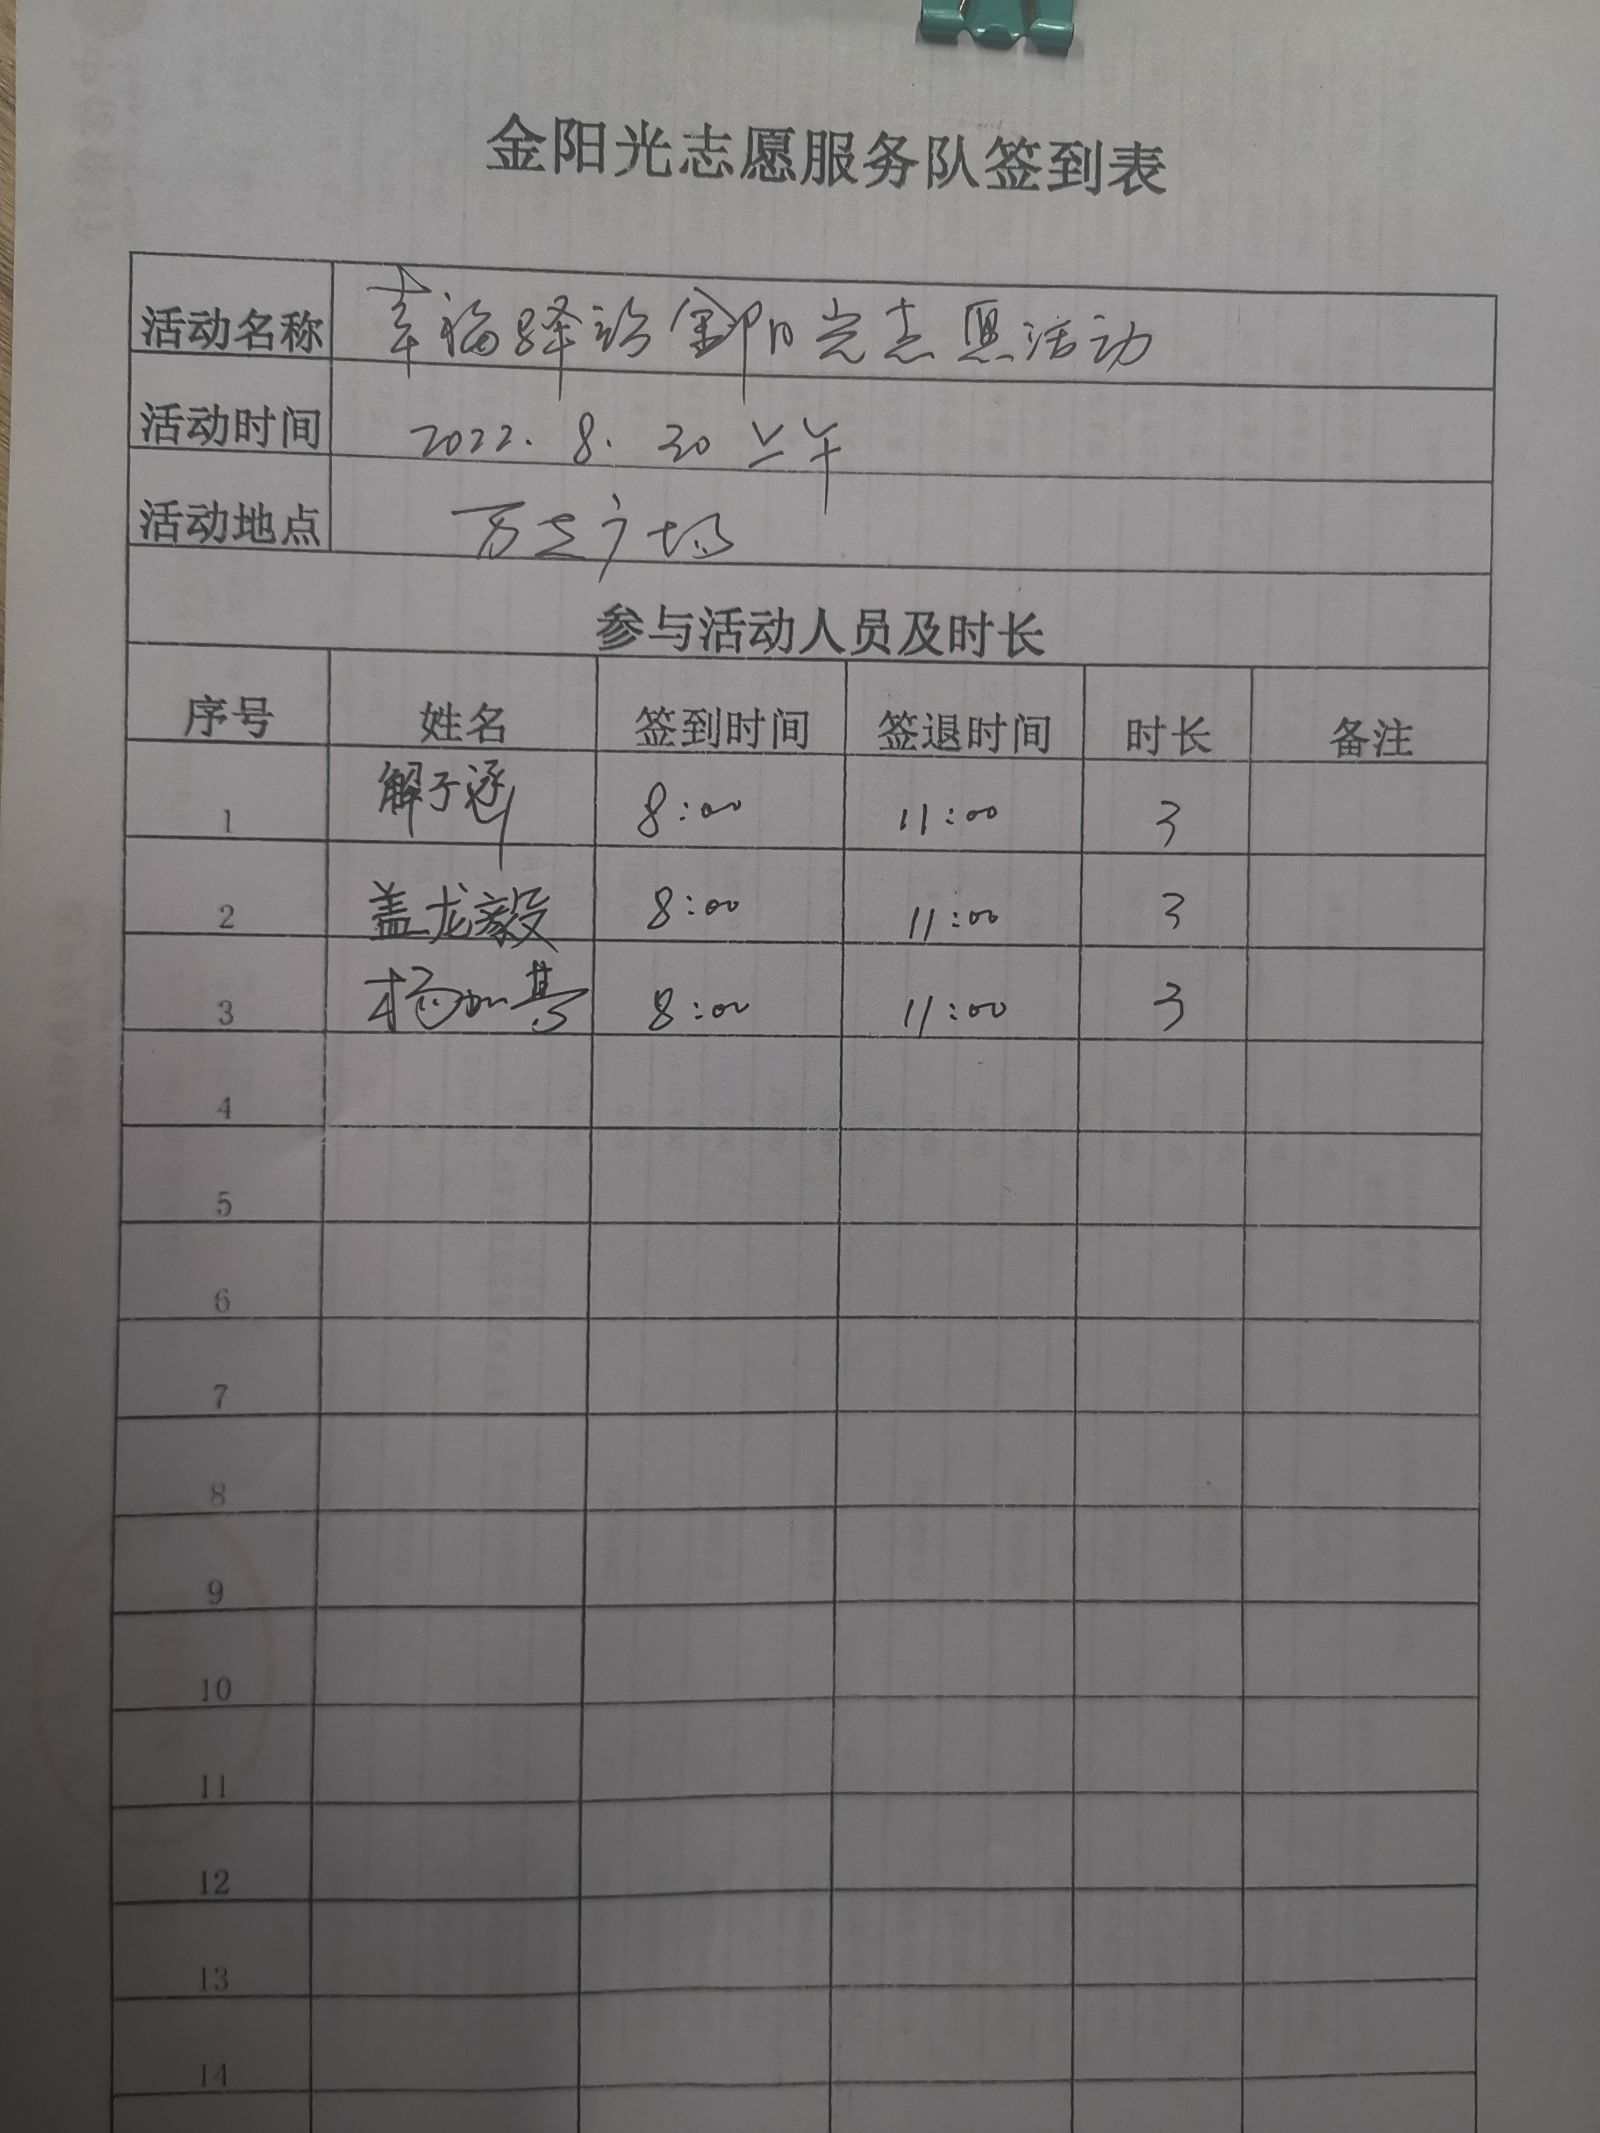 金阳光志愿服务队签到表
活动名称 幸福驿站金阳光志愿活动
活动时间 2022.8.20 上午
活动地点 万达广场
参与活动人员及时长
序号 姓名 签到时间 签退时间 时长 备注
1 解子涵 8:00 11:00 3
2 盖龙毅 8:00 11:00 3
3 8:00 11:00 3
4
5
6
7
8
9
10
11
12
13
14